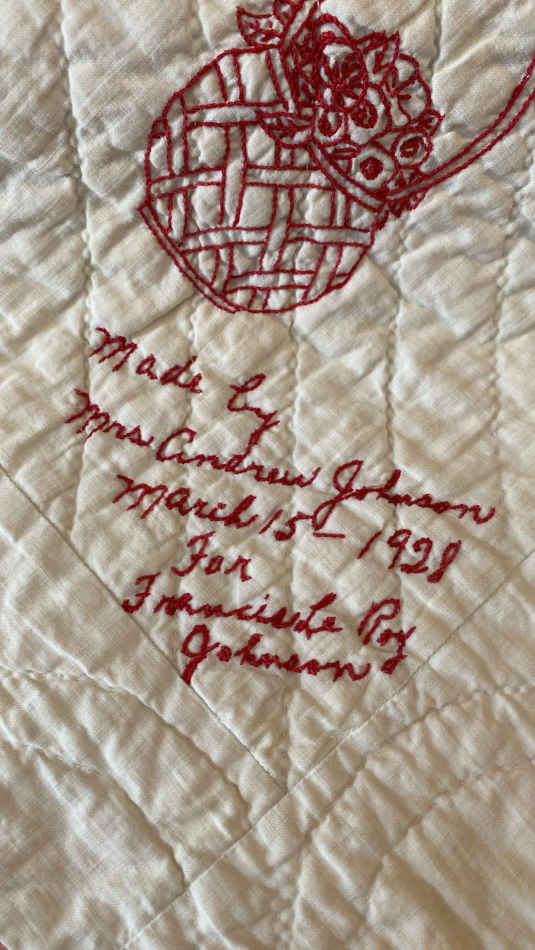 Made by
Mrs. Andrew Johnson
March 15 – 1928
For
Francis Le Roy
Johnson